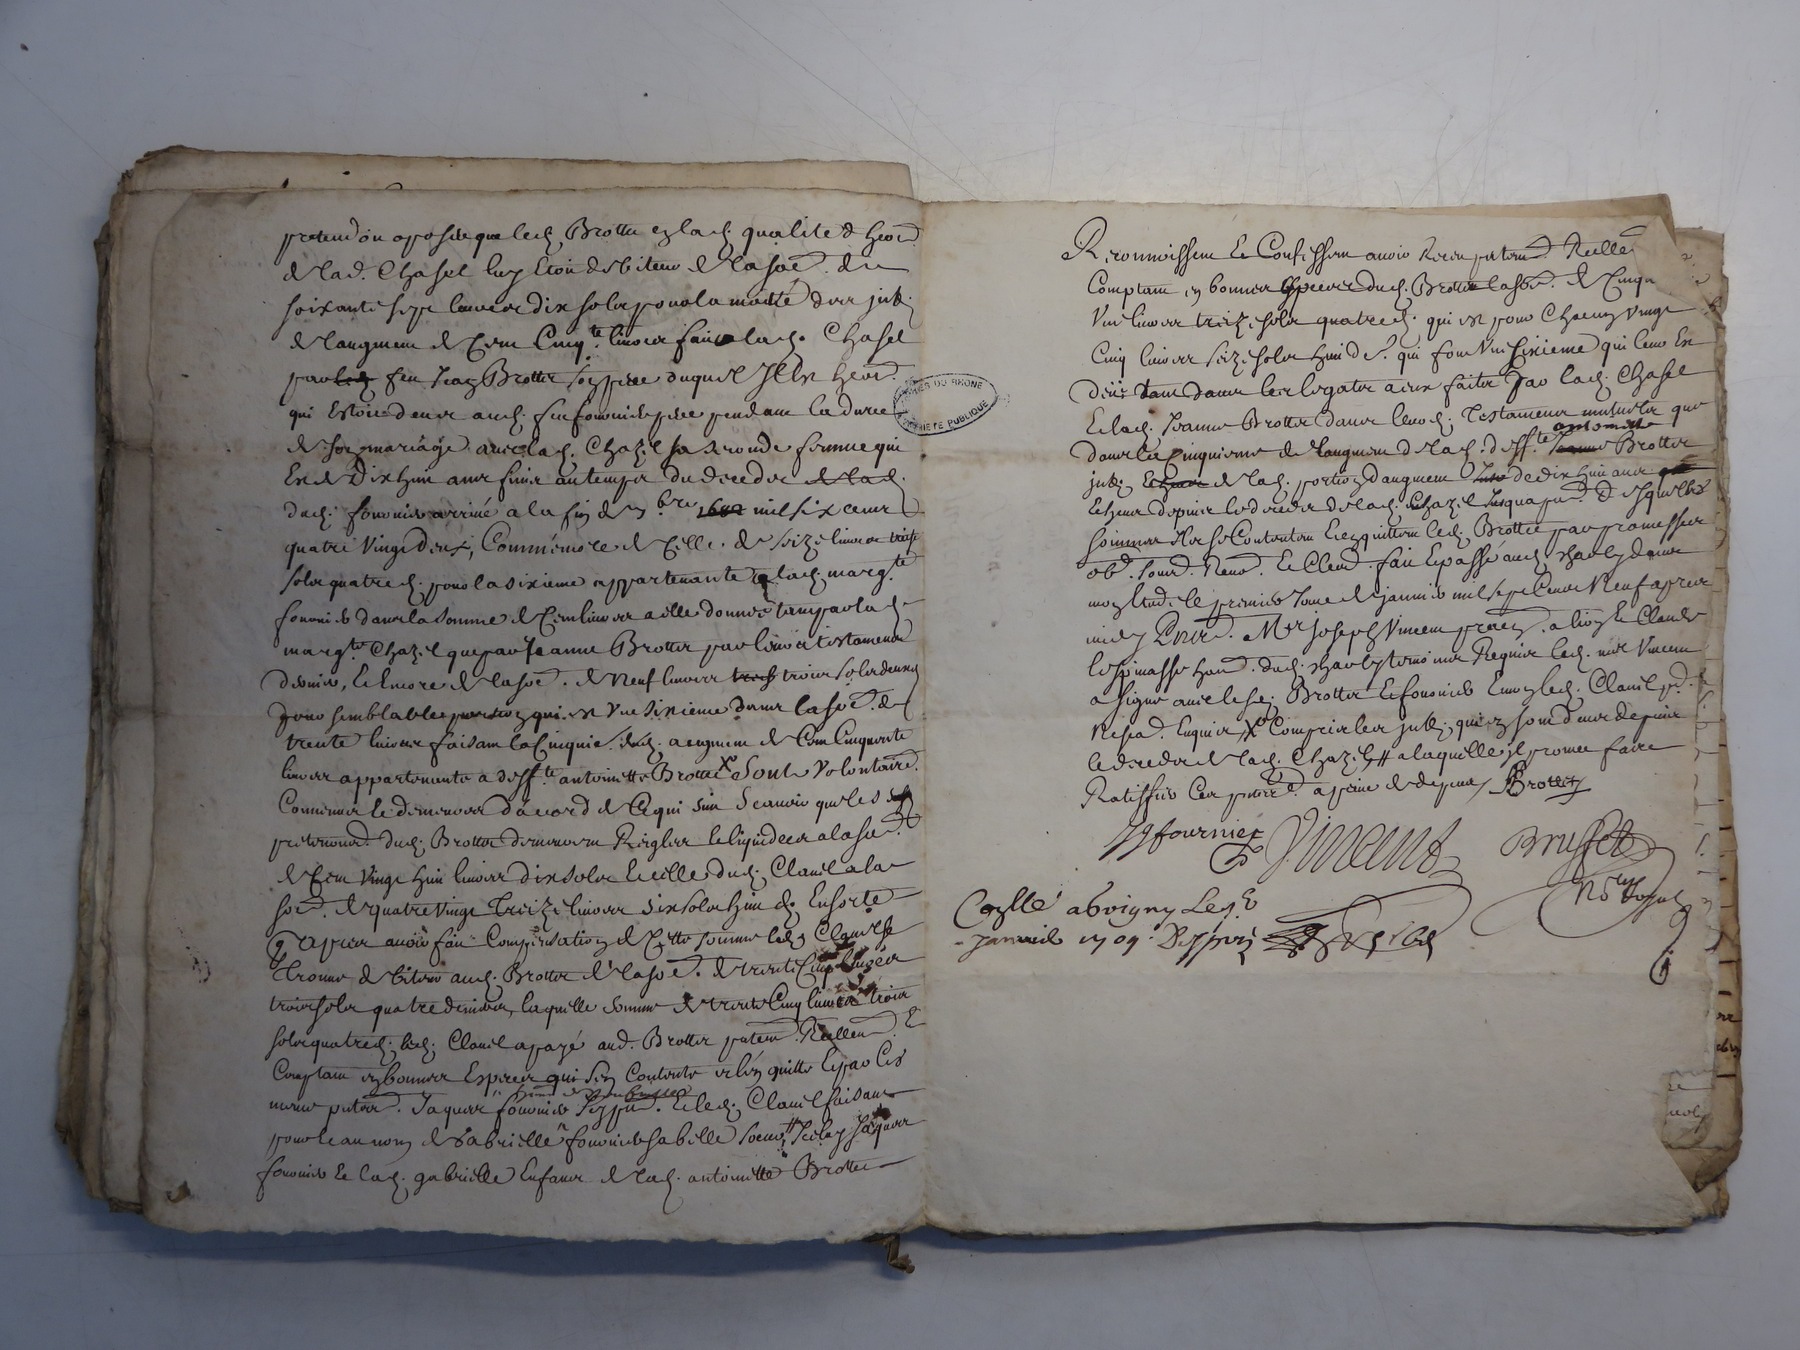 pretend on oposite que led. Brottier en lad. qualité d'heor.
de lad. Chasel luy Estoit debiteur de la so.e de
soixante sept livres dix sols pour la moitié des jnt.
de laugment de Cent Cinq.te livres fait a lad. Chasel
par feu Jean Brottier son pere duquel Il est heor.
qui Estoit deues aud. feu fournier pere pendant la durée
de son mariage avec lad. Chazel sa seconde femme qui
Est de Dix huit ans finis au temps du decedes de lad.
dud. fournier arrivé a la fin de bre 1682 mil six cent
quatre vingt deux, Comm'encore de Celle de seize livres treize
sols quatre d. pour la sixieme appartenante a lad. marg.te
fournier dans la somme de Cent livres a elle donnée tant par lad.
marg.te Chazel que par Jeanne Brottier par leurs testaments
derniers, Et Encore de la so.e de Neuf livres trois trois sols deux d.
pour semblable portion qui est Une sixieme dans la so.e de
trente livres faisant la Cinquie. dud. augment de Cent Cinquante
livres appartenante a deff.te antoinette Brottier X Sont Volontaire.
Convenus et demeurés d'acord de Ce qui suit Scavoir que les
pretentions dud. Brottier demeurent Reiglées et liquidées a la so.e
de Cent Vingt huit livres dix sols Et celles dud. Clavel a la
so.e de quatre Vingt Treize livres six sols huit d. En sorte
q' apres avoir fait Compensation de Cette somme led. Clavel se
Trouve debiteur aud. Brottier de la so.e de trente Cinq livres
trois sols quatre deniers, laquelle somme de trente Cinq livres trois
sols quatre d. led. Clavel a payé aud. Brottier Reellem. Et
Comptant en bonnes Especes qui s'en Contente et l'en quitte Et par Ces
mesmes Jaques fournier Et led. Clavel faisant
pour et au nom de Gabrielle fournier sa belle soeur Jcelluy Jacques
fournier Et lad. gabrielle Enfants de lad. antoinette Brottier
ARCHIVES DU RHONE
PROPRIETE PUBLIQUE
Reconnoissent Et Confessent avoir Receu Reelle
Comptant en bonnes Especes dud. Brottier la so.e de Cinqu
Une livres treize sols quatre d. qui est pour Chacun Vingt
Cinq livres seize sols huit d. qui font Un Sixieme qui leur Est
deue tant dans les legates a eux faites Par lad. Chasel
Et lad. Jeanne Brottier dans leurs d. Testaments mutuels que
antoinette
dans la Cinquieme de laugment de lad. deff.te Jeanne Brottier
jnt. de lad. portion daugment de dix huit ans
Escheus depuis le decedes de lad. Chazel Jusqua desquelles
sommes Ils se Contentent Et en quittent led. Brottier par promesses
ob. soum. Renon. Et Claus. fait Et passé aud. Charly dans
mon Etude le premier Jour de janvier mil sept Cent Neuf apres
midy Pnts. M.re joseph Vincent a lion Et Claude
lespinasse hon. dud. Charly temoins Requis led. mr Vincent
a signé avec lesd. Brottier Et fournier Et non led. Clavel
Ne sca. Enquis X Compris les jnt. qui en sont deues depuis
le decedes de lad. Chazel # a laquelle jl promet faire
Ratiffier Ces a peine de depens Brottier
Jq fournier
Vincent
Brusset
No.re Royal
Collé a Brignay Le
janvier 1709.